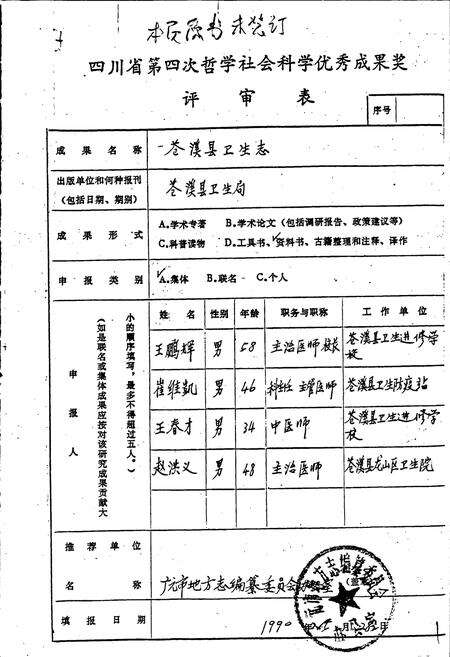 本页原书未装订
四川省第四次哲学社会科学优秀成果奖
评审表
序号
成果名称 苍溪县卫生志
出版单位和何种报刊(包括日期、期别) 苍溪县卫生局
成果形式 A.学术专著 B.学术论文(包括调研报告、政策建议等)
C.科普读物 D.工具书、资料书、古籍整理和注释、译作
申报类别 A.集体 B.联名 C.个人
申报人
(如是联名或集体成果应按对该研究成果贡献大
小的顺序填写,最多不得超过五人。)
姓名 性别 年龄 职务与职称 工作单位
王鹏辉 男 58 主治医师 校长 苍溪县卫生进修学校
崔维凯 男 46 主管医师 苍溪县卫生防疫站
王春才 男 34 中医师 苍溪县卫生进修学校
赵洪义 男 48 主治医师 苍溪县龙山区卫生院
推荐单位
名称 广元市地方志编纂委员会
填报日期 1990年 月 日